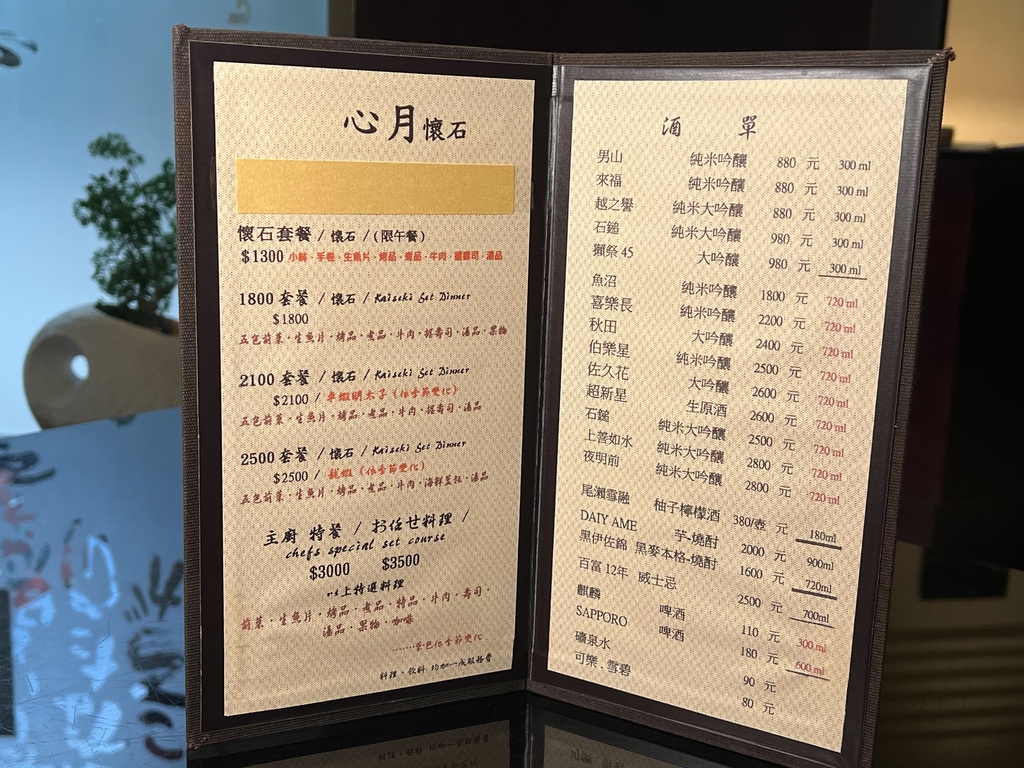 心月懷石
懷石套餐 / 懷石 / (限午餐)
$1300 小缽·手卷·生魚片·烤品·煮品·牛肉·握壽司·湯品
1800 套餐 / 懷石 / Kaiseki Set Dinner
$1800
五色前菜·生魚片·烤品·煮品·牛肉·握壽司·湯品·果物
2100 套餐 / 懷石 / Kaiseki Set Dinner
$2100 / 車蝦明太子 (依季節變化)
五色前菜·生魚片·烤品·煮品·牛肉·握壽司·湯品
2500 套餐 / 懷石 / Kaiseki Set Dinner
$2500 / 龍蝦 (依季節變化)
五色前菜·生魚片·烤品·煮品·牛肉·海鮮釜飯·湯品
主廚 特餐 / お任せ料理 /
chefs special set course
$3000 $3500
以上特選料理
前菜·生魚片·烤品·煮品·特品·牛肉·壽司·
湯品·果物·咖啡
......菜色依季節變化
料理·飲料 均加一成服務費
酒 單
男山 純米吟釀 880 元 300 ml
來福 純米吟釀 880 元 300 ml
越之譽 純米大吟釀 880 元 300 ml
石鎚 純米大吟釀 980 元 300 ml
獺祭 45 大吟釀 980 元 300 ml
魚沼 純米吟釀 1800 元 720 ml
喜樂長 純米吟釀 2200 元 720 ml
秋田 大吟釀 2400 元 720 ml
伯樂星 純米吟釀 2500 元 720 ml
佐久花 大吟釀 2600 元 720 ml
超新星 生原酒 2600 元 720 ml
石鎚 純米大吟釀 2500 元 720 ml
上善如水 純米大吟釀 2800 元 720 ml
夜明前 純米大吟釀 2800 元 720 ml
尾瀨雪融 柚子檸檬酒 380/壺 元 180ml
DAIY AME 芋-燒酎 2000 元 900ml
黑伊佐錦 黑麥本格-燒酎 1600 元 720ml
百富 12年 威士忌 2500 元 700ml
麒麟 啤酒 110 元 300 ml
SAPPORO 啤酒 180 元 600 ml
礦泉水 90 元
可樂·雪碧 80 元